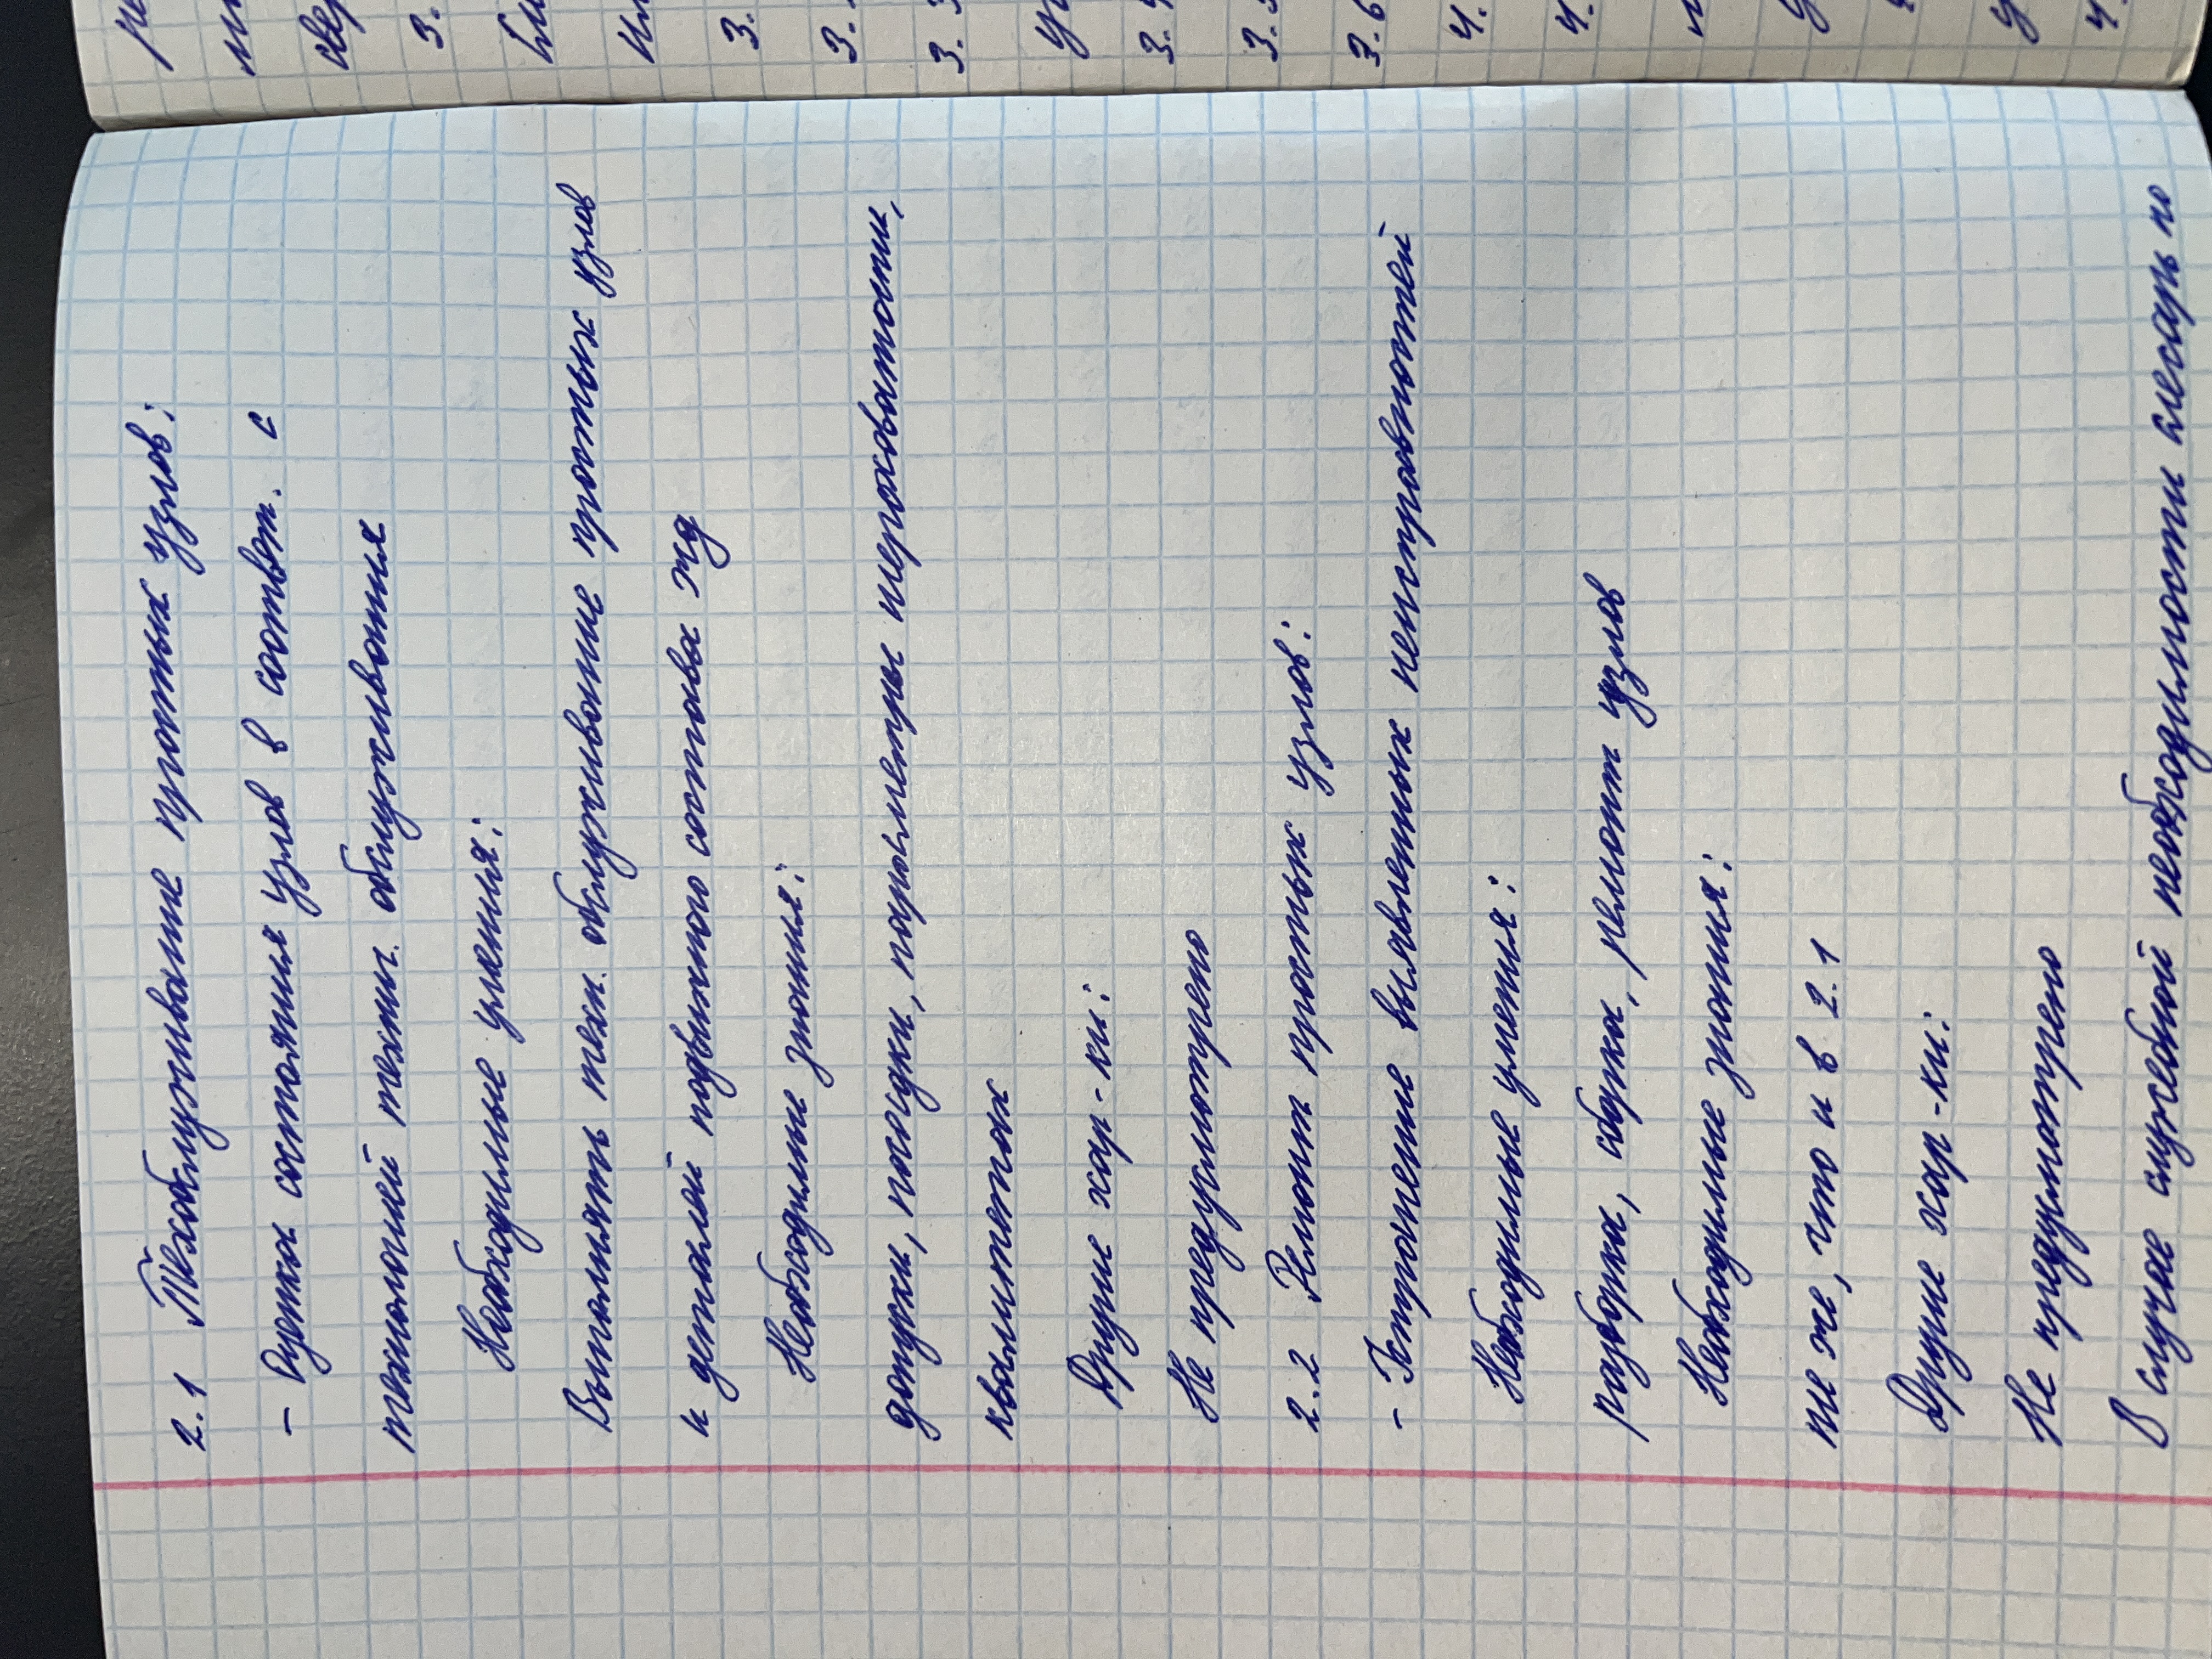 2.1 Техобслуживание простых узлов:
- Оценка состояния узлов в соответ. с
технологией технич. обслуживания
Необходимые умения:
Выполнять техн. обслуживание простых узлов
и деталей подвижного состава жд
Необходимые знания:
допуски, посадки, параметры шероховатости,
квалитетах
Другие хар-ки:
Не предусмотрено
2.2 Ремонт простых узлов:
- Устранение выявленных неисправностей
Необходимые умения:
разборка, сборка, ремонт узлов
Необходимые знания:
те же, что и в 2.1
Другие хар-ки:
Не предусмотрено
В случае служебной необходимости слесарь по
3.
3.
3.
3.
3.
3.6
4.
4.
4.